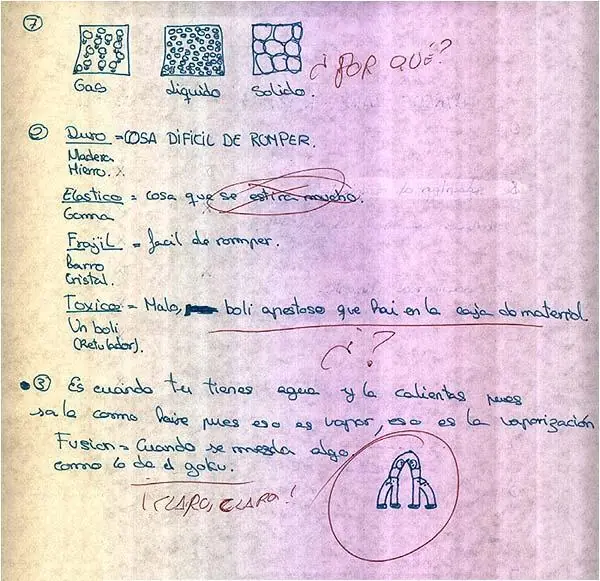 7
Gas liquido Solido. ¿POR QUÉ?
2 Duro = COSA DIFICIL DE ROMPER.
Madera
Hierro. X
Elastico = cosa que se estira mucho.
Goma
Frajil = facil de rommper.
Barro
Cristal.
Toxico = Malo, boli apestoso que hai en la caja do material.
Un boli
(Retulador).
¿?
3 Es cuándo tu tienes agua y la calientas pues
sale como haire pues eso es vapor, eso es la vaporización
Fusion = Cuando se mezcla algo
como lo de el goku.
¡CLARO, CLARO!